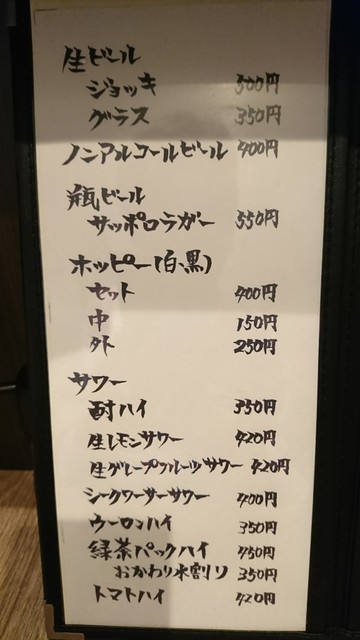 生ビール
ジョッキ 500円
グラス 350円
ノンアルコールビール 400円
瓶ビール
サッポロラガー 550円
ホッピー(白・黒)
セット 400円
中 150円
外 250円
サワー
酎ハイ 350円
生レモンサワー 420円
生グレープフルーツサワー 420円
シークワーサーサワー 400円
ウーロンハイ 350円
緑茶パックハイ 450円
おかわり水割り 350円
トマトハイ 420円